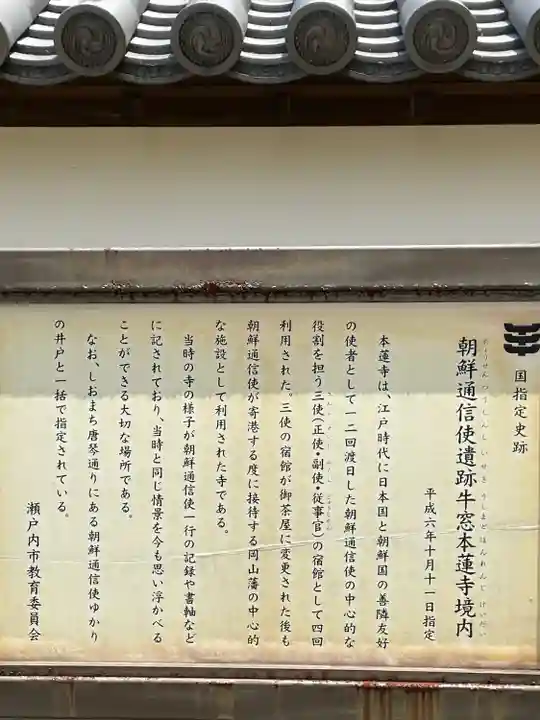 国指定史跡
朝鮮通信使遺跡牛窓本蓮寺境内
ちょうせんつうしんしいせきうしまどほんれんじけいだい
平成六年十月十一日指定
本蓮寺は、江戸時代に日本国と朝鮮国の善隣友好
の使者として一二回渡日した朝鮮通信使の中心的な
役割を担う三使(正使・副使・従事官)の宿館として四回
利用された。三使の宿館が御茶屋に変更された後も
朝鮮通信使が寄港する度に接待する岡山藩の中心的
な施設として利用された寺である。
当時の寺の様子が朝鮮通信使一行の記録や書軸など
に記されており、当時と同じ情景を今も思い浮かべる
ことができる大切な場所である。
なお、しおまち唐琴通りにある朝鮮通信使ゆかり
の井戸と一括で指定されている。
瀬戸内市教育委員会